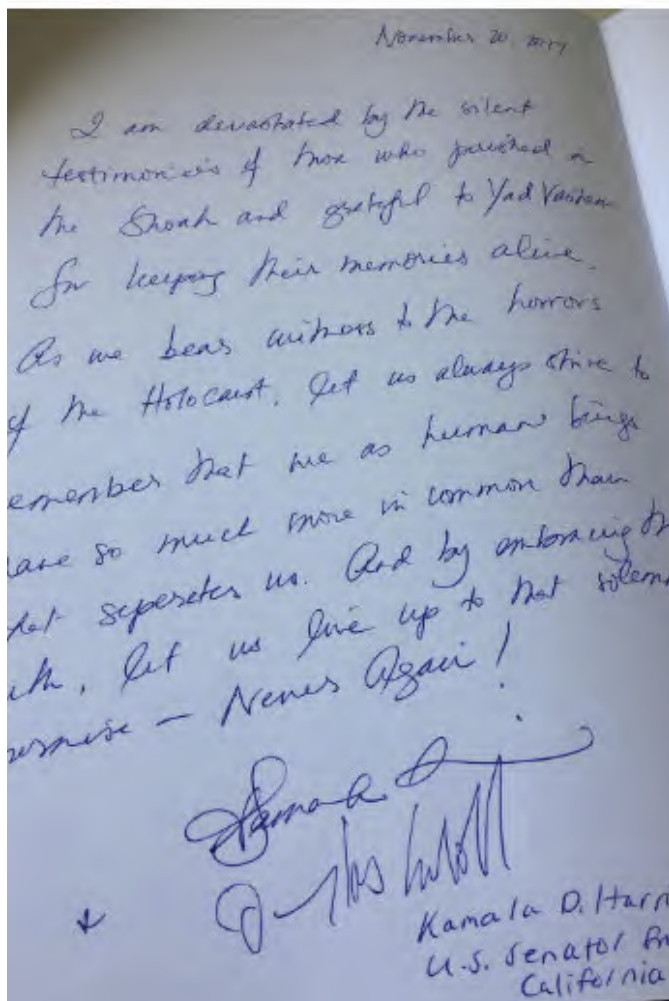 November 20, 2017
I am devastated by the silent
testimonies of those who perished in
the Shoah and grateful to Yad Vashem
for keeping their memories alive.
As we bear witness to the horrors
of the Holocaust, let us always strive to
emember that we as human beings
have so much more in common than
hat seperates us. And by embracing th
uth, let us live up to that solemn
romise — Never Again!
Kamala
Kamala D. Harr
U.S. Senator fr
California